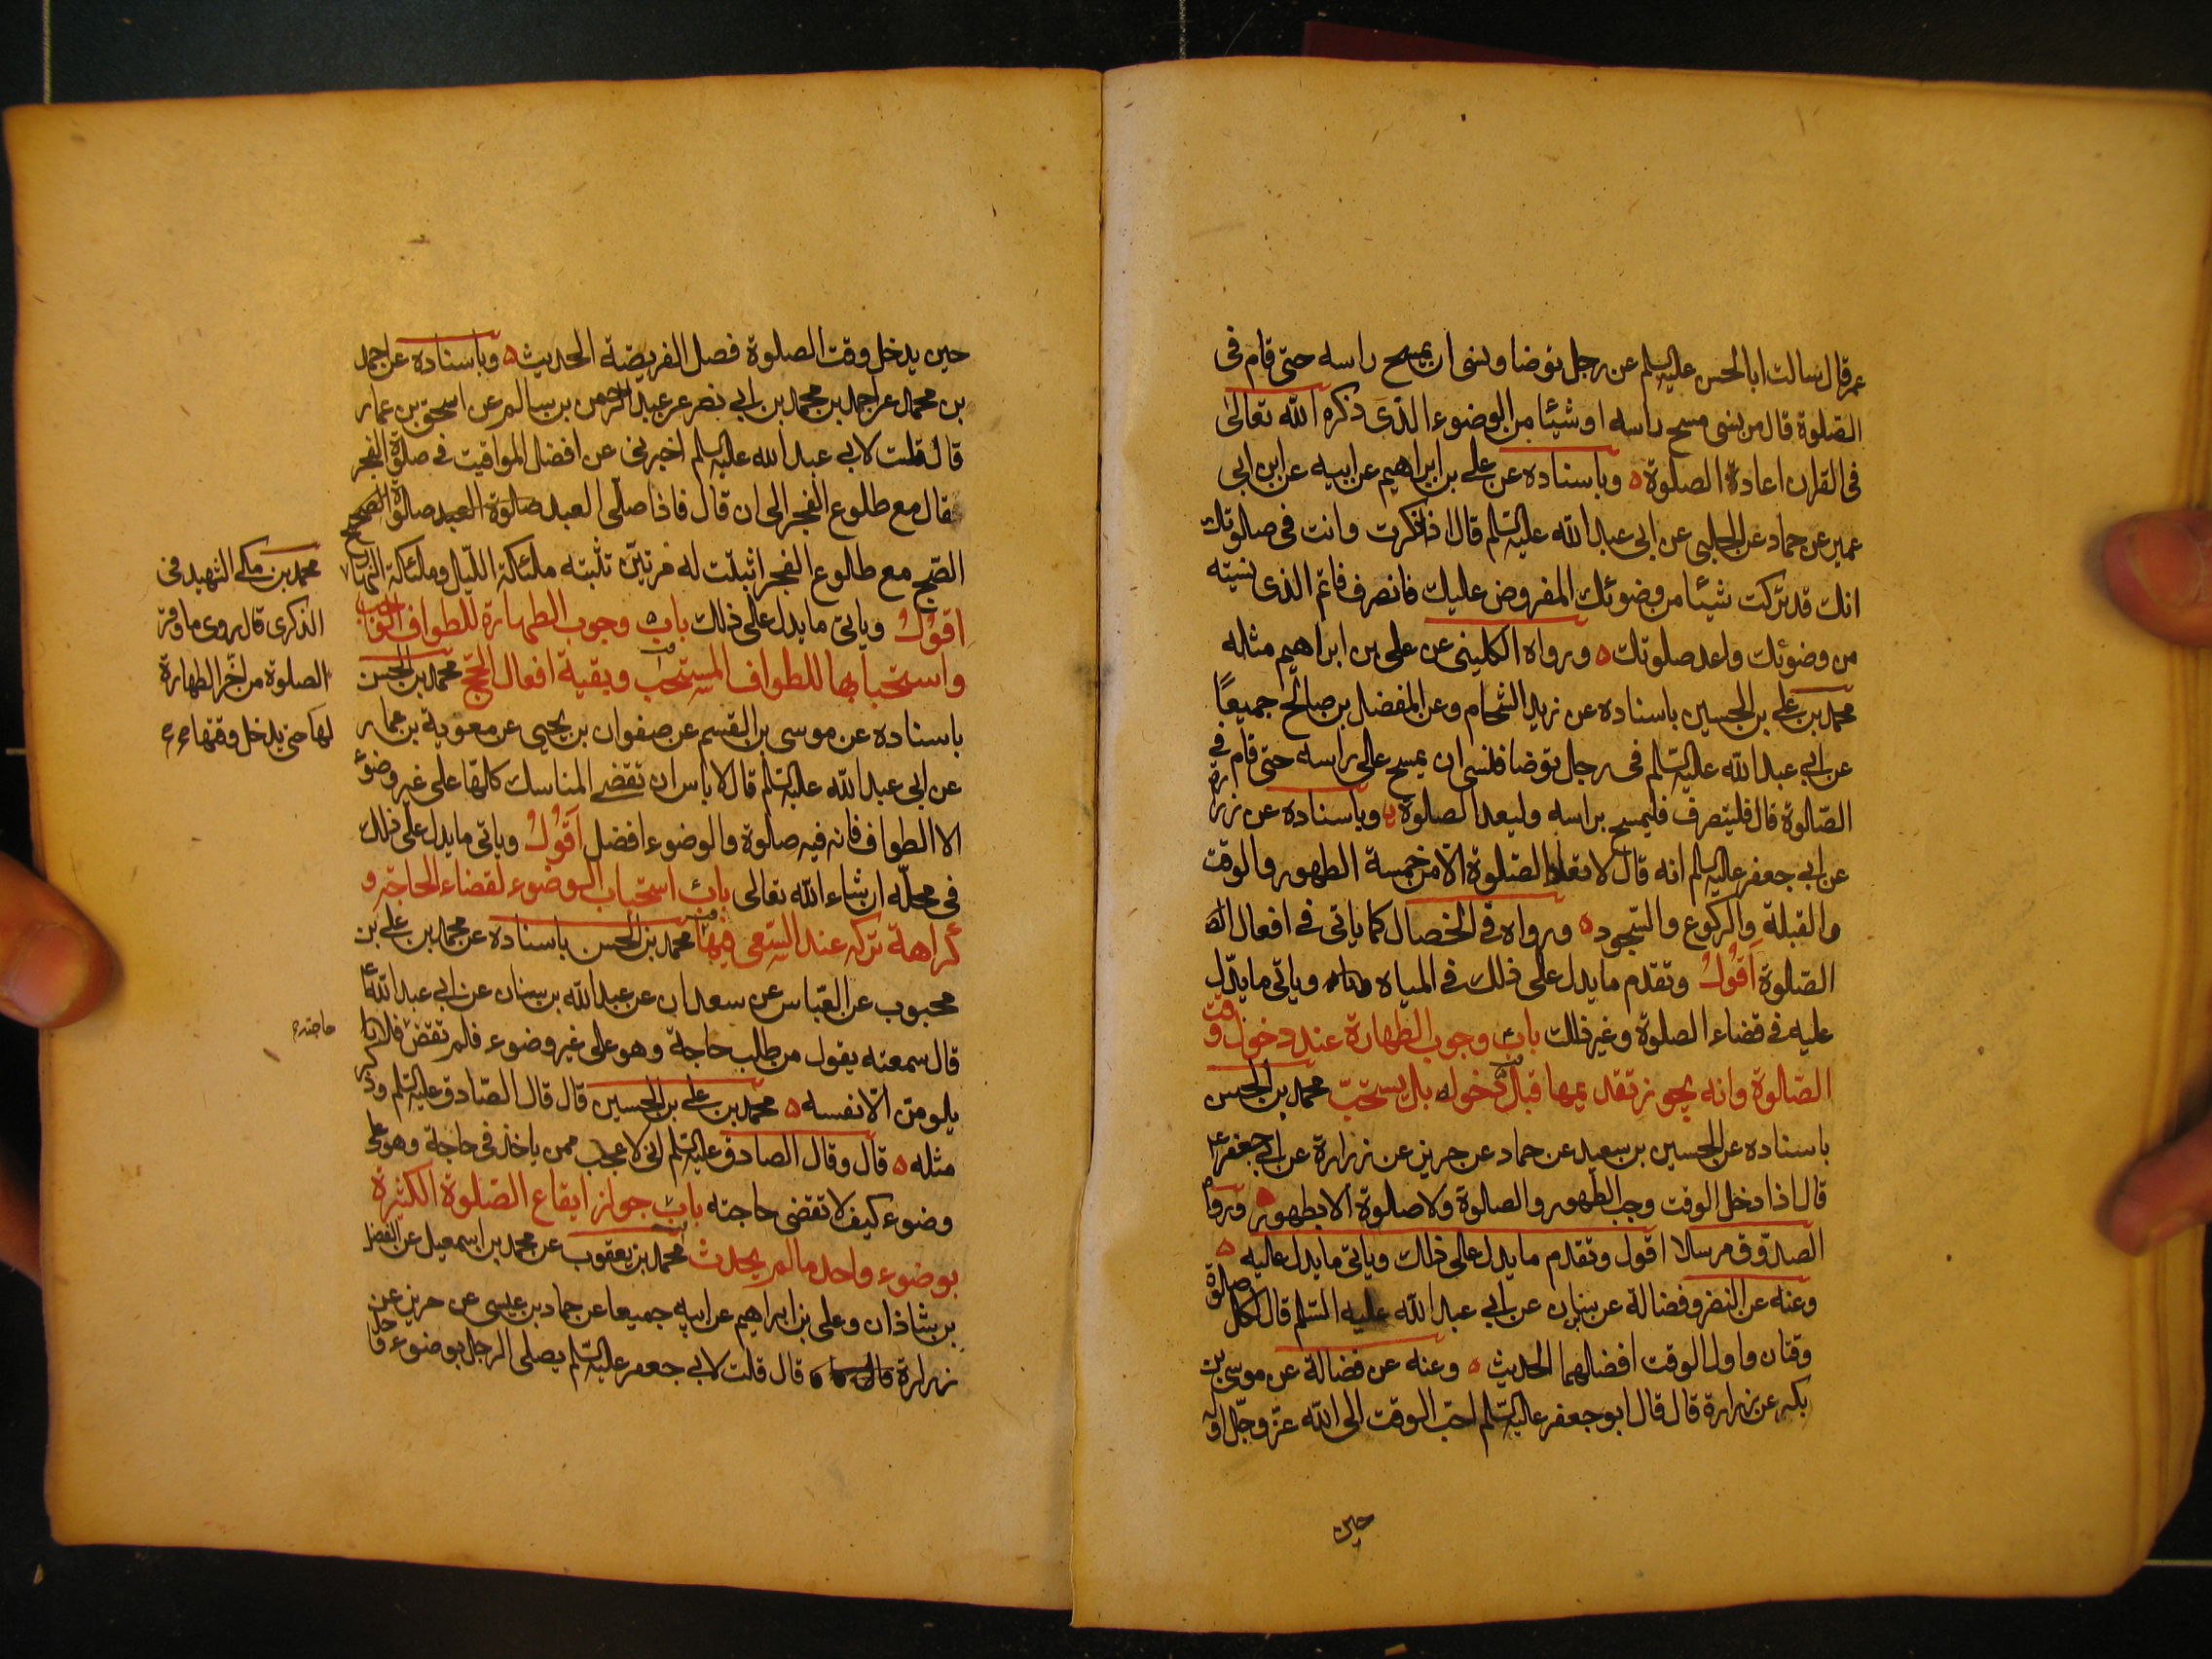 عمر قال سالت ابا الحسن عليه السلم عن رجل توضا ونسى ان يمسح راسه حتى قام فى
الصّلوة قال من نسى مسح راسه او شيئا من الوضوء الذى ذكره الله تعالى
فى القران اعادة الصلوة ه وباسناده عن على بن ابراهيم عن ابيه عن ابن ابى
عمير عن حماد عن الحلبى عن ابى عبد الله عليه السّلم قال اذا ذكرت وانت فى صلوتك
انك قد تركت شيئا من وضوئك المفروض عليك فانصرف فاتم الذى نسيته
من وضوئك واعد صلوتك ه ورواه الكلينى عن على بن ابراهيم مثله
محمد بن على بن الحسين باسناده عن زيد الشحام وعن المفضل بن صالح جميعًا
عن ابى عبد الله عليه السّلم فى رجل توضا فنسى ان يمسح على راسه حتى قام فى
الصّلوة قال فلينصرف فليمسح براسه وليعد الصلوة ه وباسناده عن زرارة
عن ابى جعفر عليه السلم انه قال لا تعاد الصّلوة الّا من خمسة الطهور والوقت
والقبلة والركوع والسّجود ه ورواه فى الخصال كما ياتى فى افعال الص
الصّلوة اَقُولُ وتقدم ما يدل على ذلك فى المياه وياتى ما يدّل
عليه فى قضاء الصلوة وغير ذلك باب وجوب الطهارة عند دخول وقت
الصّلوة وانه يجوز تقديمها قبل دخوله بل يستحبّ محمد بن الحسن
باسناده عن الحسين بن سعيد عن حماد عن حريز عن زرارة عن ابى جعفر ع
قال اذا دخل الوقت وجب الطهور والصلوة ولا صلوة الا بطهور ه ورواه
الصدّوق مرسلا اقول وتقدم ما يدل على ذلك وياتى ما يدل عليه ه
وعنه عن النضر وفضالة عن سنان عن ابى عبد الله عليه السّلم قال لكل صلوة
وقتان واول الوقت افضلهما الحديث ه وعنه عن فضالة عن موسى بن
بكر عن زرارة قال قال ابو جعفر عليه السّلم احبّ الوقت الى الله عزّ وجّل اوله
حين
حين يدخل وقت الصلوة فصل الفريضة الحديث ه وباسناده عن احمد
بن محمد عن احمد بن محمد بن ابى نصر عن عبد الرحمن بن سالم عن اسحق بن عمار
قال قلت لابى عبد الله عليه السلم اخبرنى عن افضل المواقيت فى صلوة الفجر
فقال مع طلوع الفجر الى ان قال فاذا صلّى العبد صلوة العبد صلوة الصبح
الصّبح مع طلوع الفجر اثبتت له مرتيّن تثبته ملئكة اللّيل وملئكة النهار
اَقوُلُ وياتى ما يدل على ذلك باب وجوب الطهارة للطواف الواجب
واستحبابها للطواف المستحب وبقية افعال الحجّ محمد بن الحسن
باسناده عن موسى بن القسم عن صفوان بن يحيى عن معوية بن عمار
عن ابى عبد الله عليه السّلم قال لا باس ان تقضى المناسك كلها على غير وضوء
الا الطواف فانه فيه صلوة والوضوء افضل اَقُولُ وياتى ما يدل على ذلك
فى محلّه ان شاء الله تعالى باب استحباب الوضوء لقضاء الحاجة و
كراهة تركه عند السّعى فيها محمد بن الحسن باسناده عن محمد بن على بن
محبوب عن العباس عن سعدان عن عبد الله بن سنان عن ابى عبد الله ع
قال سمعته يقول من طلب حاجة وهو على غير وضوء فلم تقض فلا
يلومن الّا نفسه ه محمد بن على بن الحسين قال قال الصّادق عليه السّلم وذكر
مثله ه قال وقال الصادق عليه السّلم انى لاعجب ممن ياخذ فى حاجة وهو على
وضوء كيف لا تقضى حاجته باب جواز ايقاع الصّلوة الكثيرة
بوضوء واحد ما لم يحدث محمد بن يعقوب عن محمد بن اسمعيل عن الفضل
بن شاذان وعلى بن ابراهيم عن ابيه جميعا عن حماد بن عيسى عن حريز عن
زرارة قال قلت لابى جعفر عليه السّلم يصلى الرجل بوضوء واحد
محمد بن مكى الشهيد فى
الذكرى قال روى ما وقر
الصلوة من اخّر الطهارة
لها حتى يدخل وقتها
حاجته